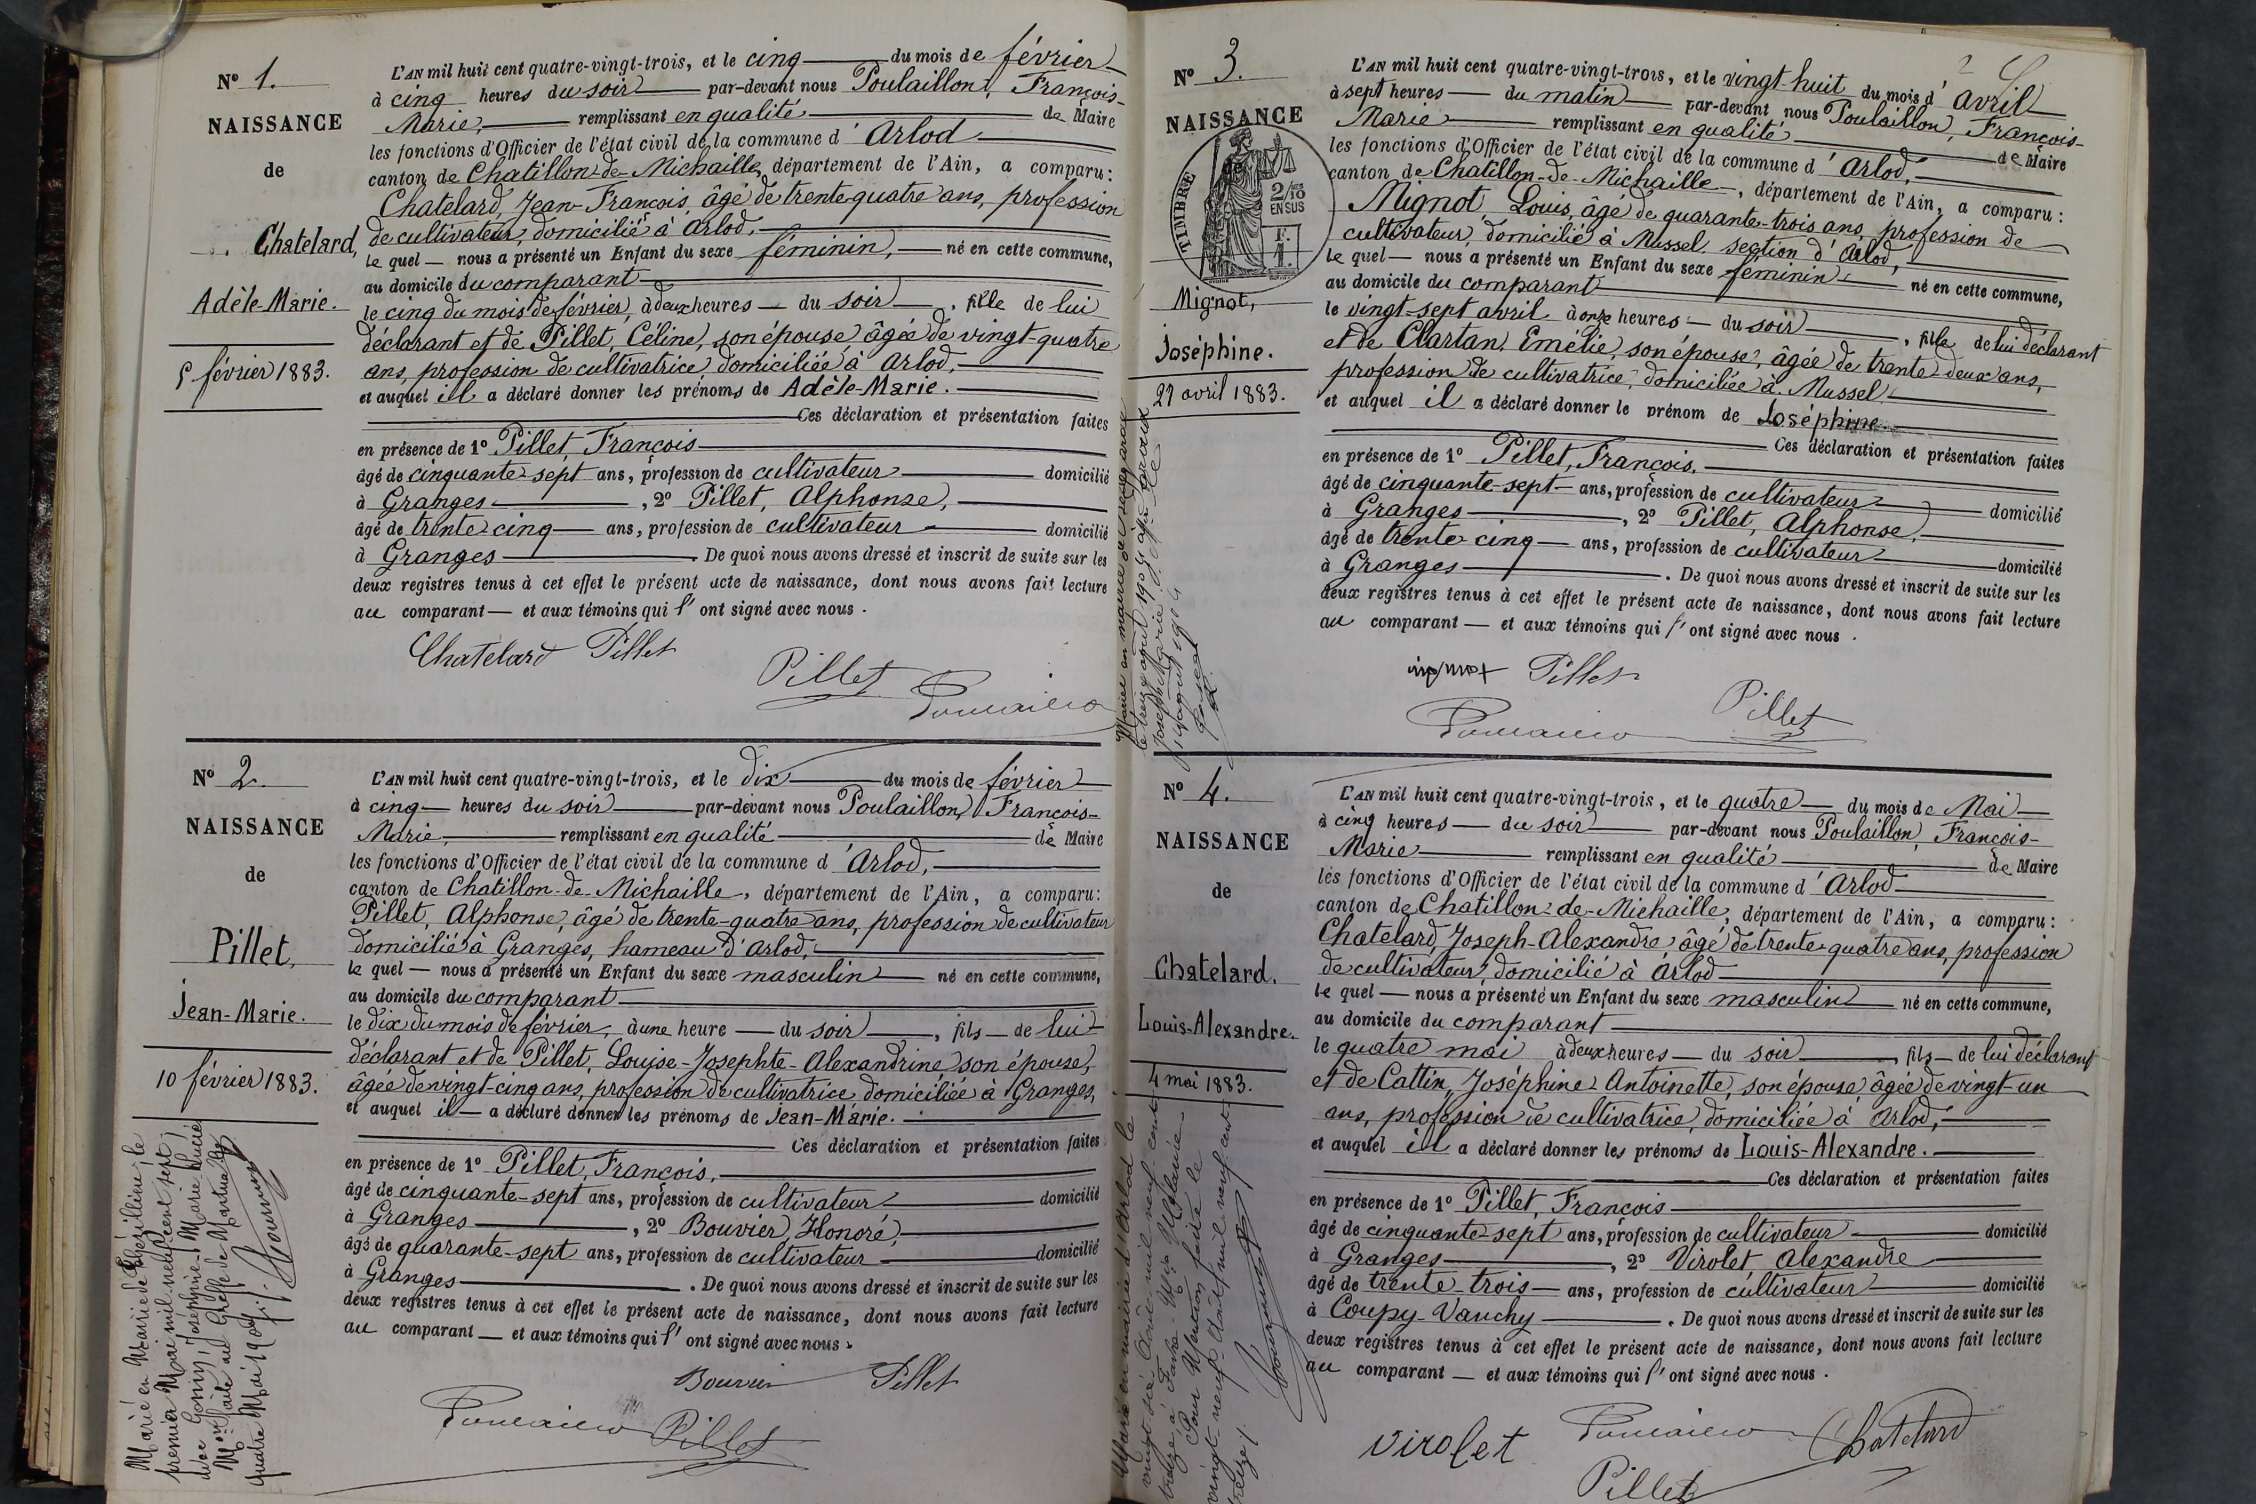 N° 1.
NAISSANCE
de
Chatelard,
Adèle-Marie.
5 février 1883.
L'AN mil huit cent quatre-vingt-trois, et le cinq du mois de février
à cinq heures du soir par-devant nous Poulaillon, François-
Marie, remplissant en qualité de Maire
les fonctions d'Officier de l'état civil de la commune d'Arlod
canton de Chatillon-de-Michaille, département de l'Ain, a comparu:
Chatelard, Jean-François, âgé de trente-quatre ans, profession
de cultivateur, domicilié à Arlod,
le quel nous a présenté un Enfant du sexe féminin, né en cette commune,
au domicile du comparant
le cinq du mois de février, à deux heures du soir, fille de lui
déclarant et de Pillet, Céline, son épouse, âgée de vingt-quatre
ans, profession de cultivatrice domiciliée à Arlod,
et auquel il a déclaré donner les prénoms de Adèle-Marie.
Ces déclaration et présentation faites
en présence de 1° Pillet, François
âgé de cinquante-sept ans, profession de cultivateur domicilié
à Granges, 2° Pillet, Alphonse,
âgé de trente-cinq ans, profession de cultivateur domicilié
à Granges. De quoi nous avons dressé et inscrit de suite sur les
deux registres tenus à cet effet le présent acte de naissance, dont nous avons fait lecture
au comparant et aux témoins qui l'ont signé avec nous.
Chatelard Pillet
Pillet
N° 2.
NAISSANCE
de
Pillet,
Jean-Marie.
10 février 1883.
Marié en Mairie de
premier Mai mil neuf cent sept
avec Gonin, Joséphine Marie Lucie
Mon faite au Greffe de Nantua le
quatre Mai 1907
L'AN mil huit cent quatre-vingt-trois, et le dix du mois de février
à cinq heures du soir par-devant nous Poulaillon, François-
Marie, remplissant en qualité de Maire
les fonctions d'Officier de l'état civil de la commune d'Arlod,
canton de Chatillon-de-Michaille, département de l'Ain, a comparu:
Pillet, Alphonse, âgé de trente-quatre ans, profession de cultivateur
domicilié à Granges, hameau d'Arlod,
le quel nous a présenté un Enfant du sexe masculin né en cette commune,
au domicile du comparant
le dix du mois de février, à une heure du soir, fils de lui
déclarant et de Pillet, Louise-Josephte-Alexandrine, son épouse,
âgée de vingt-cinq ans, profession de cultivatrice domiciliée à Granges,
et auquel il a déclaré donner les prénoms de Jean-Marie.
Ces déclaration et présentation faites
en présence de 1° Pillet, François,
âgé de cinquante-sept ans, profession de cultivateur domicilié
à Granges, 2° Bouvier, Honoré,
âgé de quarante-sept ans, profession de cultivateur domicilié
à Granges. De quoi nous avons dressé et inscrit de suite sur les
deux registres tenus à cet effet le présent acte de naissance, dont nous avons fait lecture
au comparant et aux témoins qui l'ont signé avec nous.
Bouvier Pillet
Pillet
N° 3.
NAISSANCE
de
TIMBRE
2/10 EN SUS
F. 1.
Mignot,
Joséphine.
27 avril 1883.
L'AN mil huit cent quatre-vingt-trois, et le vingt-huit du mois d'avril
à sept heures du matin par-devant nous Poulaillon, François-
Marie remplissant en qualité de Maire
les fonctions d'Officier de l'état civil de la commune d'Arlod,
canton de Chatillon-de-Michaille, département de l'Ain, a comparu:
Mignot, Louis, âgé de quarante-trois ans, profession de
cultivateur, domicilié à Mussel, section d'Arlod,
le quel nous a présenté un Enfant du sexe féminin né en cette commune,
au domicile du comparant
le vingt-sept avril à onze heures du soir, fille de lui déclarant
et de Clartan, Emélie, son épouse, âgée de trente-deux ans,
profession de cultivatrice, domiciliée à Mussel
et auquel il a déclaré donner le prénom de Joséphine.
Ces déclaration et présentation faites
en présence de 1° Pillet, François,
âgé de cinquante-sept ans, profession de cultivateur domicilié
à Granges, 2° Pillet, Alphonse,
âgé de trente-cinq ans, profession de cultivateur domicilié
à Granges. De quoi nous avons dressé et inscrit de suite sur les
deux registres tenus à cet effet le présent acte de naissance, dont nous avons fait lecture
au comparant et aux témoins qui l'ont signé avec nous.
Pillet
Pillet
N° 4.
NAISSANCE
de
Chatelard.
Louis-Alexandre.
4 mai 1883.
Marié en mairie d'Arlod le
vingt six Août mil neuf cent
treize à
Pour Mention faite le
vingt-neuf Août mil neuf cent
treize
L'AN mil huit cent quatre-vingt-trois, et le quatre du mois de Mai
à cinq heures du soir par-devant nous Poulaillon, François-
Marie remplissant en qualité de Maire
les fonctions d'Officier de l'état civil de la commune d'Arlod
canton de Chatillon-de-Michaille, département de l'Ain, a comparu:
Chatelard, Joseph-Alexandre, âgé de trente-quatre ans, profession
de cultivateur, domicilié à Arlod
le quel nous a présenté un Enfant du sexe masculin né en cette commune,
au domicile du comparant
le quatre mai à deux heures du soir, fils de lui déclarant
et de Cattin, Joséphine Antoinette, son épouse âgée de vingt-un
ans, profession de cultivatrice, domiciliée à Arlod,
et auquel il a déclaré donner les prénoms de Louis-Alexandre.
Ces déclaration et présentation faites
en présence de 1° Pillet, François
âgé de cinquante-sept ans, profession de cultivateur domicilié
à Granges, 2° Virolet, Alexandre
âgé de trente-trois ans, profession de cultivateur domicilié
à Coupy-Vanchy. De quoi nous avons dressé et inscrit de suite sur les
deux registres tenus à cet effet le présent acte de naissance, dont nous avons fait lecture
au comparant et aux témoins qui l'ont signé avec nous.
Virolet Chatelard
Pillet